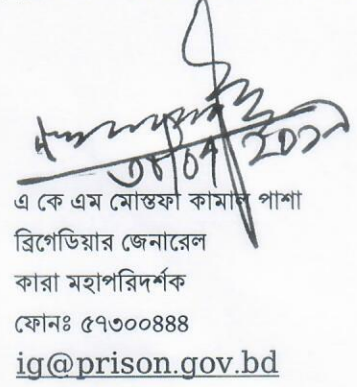 এ কে এম মোস্তফা কামাল পাশা
ব্রিগেডিয়ার জেনারেল
কারা মহাপরিদর্শক
ফোনঃ ৫৭৩০০৪৪৪
ig@prison.gov.bd